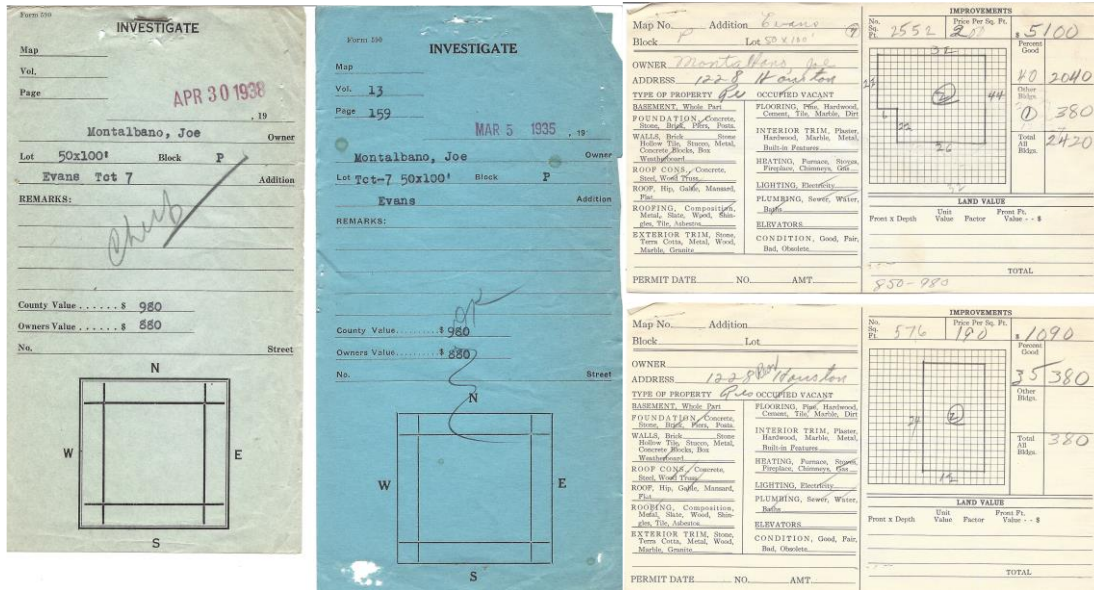 Form 390
INVESTIGATE
Map
Vol.
Page
APR 30 1938
, 19
Montalbano, Joe Owner
Lot 50x100' Block P
Evans Tct 7 Addition
REMARKS:
County Value . . . . . . $ 980
Owners Value . . . . . . $ 880
No. Street
N
W E
S
Form 390
INVESTIGATE
Map
Vol. 13
Page 159
MAR 5 1935 , 19
Montalbano, Joe Owner
Lot Tct-7 50x100' Block P
Evans Addition
REMARKS:
OK
County Value.......... $ 980
Owners Value.......... $ 880
No. Street
N
W E
S
Map No. Addition Evans 7
Block P Lot 50 x 100'
OWNER Montalbano, Joe
ADDRESS 1228 Houston
TYPE OF PROPERTY Res OCCUPIED VACANT
BASEMENT, Whole Part
FOUNDATION, Concrete,
Stone, Brick, Piers, Posts.
WALLS, Brick Stone
Hollow Tile, Stucco, Metal,
Concrete Blocks, Box
Weatherboard
ROOF CONS., Concrete,
Steel, Wood Truss
ROOF, Hip, Gable, Mansard,
Flat
ROOFING, Composition,
Metal, Slate, Wood, Shin-
gles, Tile, Asbestos
EXTERIOR TRIM, Stone,
Terra Cotta, Metal, Wood,
Marble, Granite
FLOORING, Pine, Hardwood,
Cement, Tile, Marble, Dirt
INTERIOR TRIM, Plaster,
Hardwood, Marble, Metal,
Built-in Features
HEATING, Furnace, Stoves,
Fireplace, Chimneys, Gas
LIGHTING, Electricity
PLUMBING, Sewer, Water,
Baths
ELEVATORS
CONDITION, Good, Fair,
Bad, Obsolete
PERMIT DATE NO. AMT.
IMPROVEMENTS
No. Sq. Ft. 2552 Price Per Sq. Ft. 200 $ 5100
Percent Good
40 2040
Other Bldgs.
1 380
Total All Bldgs. 2420
44
6
22
26
LAND VALUE
Front x Depth Unit Value Factor Front Ft. Value - - $
TOTAL
850-980
Map No. Addition
Block Lot
OWNER
ADDRESS 1228 Houston
TYPE OF PROPERTY Res OCCUPIED VACANT
BASEMENT, Whole Part
FOUNDATION, Concrete,
Stone, Brick, Piers, Posts.
WALLS, Brick Stone
Hollow Tile, Stucco, Metal,
Concrete Blocks, Box
Weatherboard
ROOF CONS., Concrete,
Steel, Wood Truss
ROOF, Hip, Gable, Mansard,
Flat
ROOFING, Composition,
Metal, Slate, Wood, Shin-
gles, Tile, Asbestos
EXTERIOR TRIM, Stone,
Terra Cotta, Metal, Wood,
Marble, Granite
FLOORING, Pine, Hardwood,
Cement, Tile, Marble, Dirt
INTERIOR TRIM, Plaster,
Hardwood, Marble, Metal,
Built-in Features
HEATING, Furnace, Stoves,
Fireplace, Chimneys, Gas
LIGHTING, Electricity
PLUMBING, Sewer, Water,
Baths
ELEVATORS
CONDITION, Good, Fair,
Bad, Obsolete
PERMIT DATE NO. AMT.
IMPROVEMENTS
No. Sq. Ft. 576 Price Per Sq. Ft. 190 $ 1090
Percent Good
35 380
Other Bldgs.
Total All Bldgs. 380
24
2
12
LAND VALUE
Front x Depth Unit Value Factor Front Ft. Value - - $
TOTAL